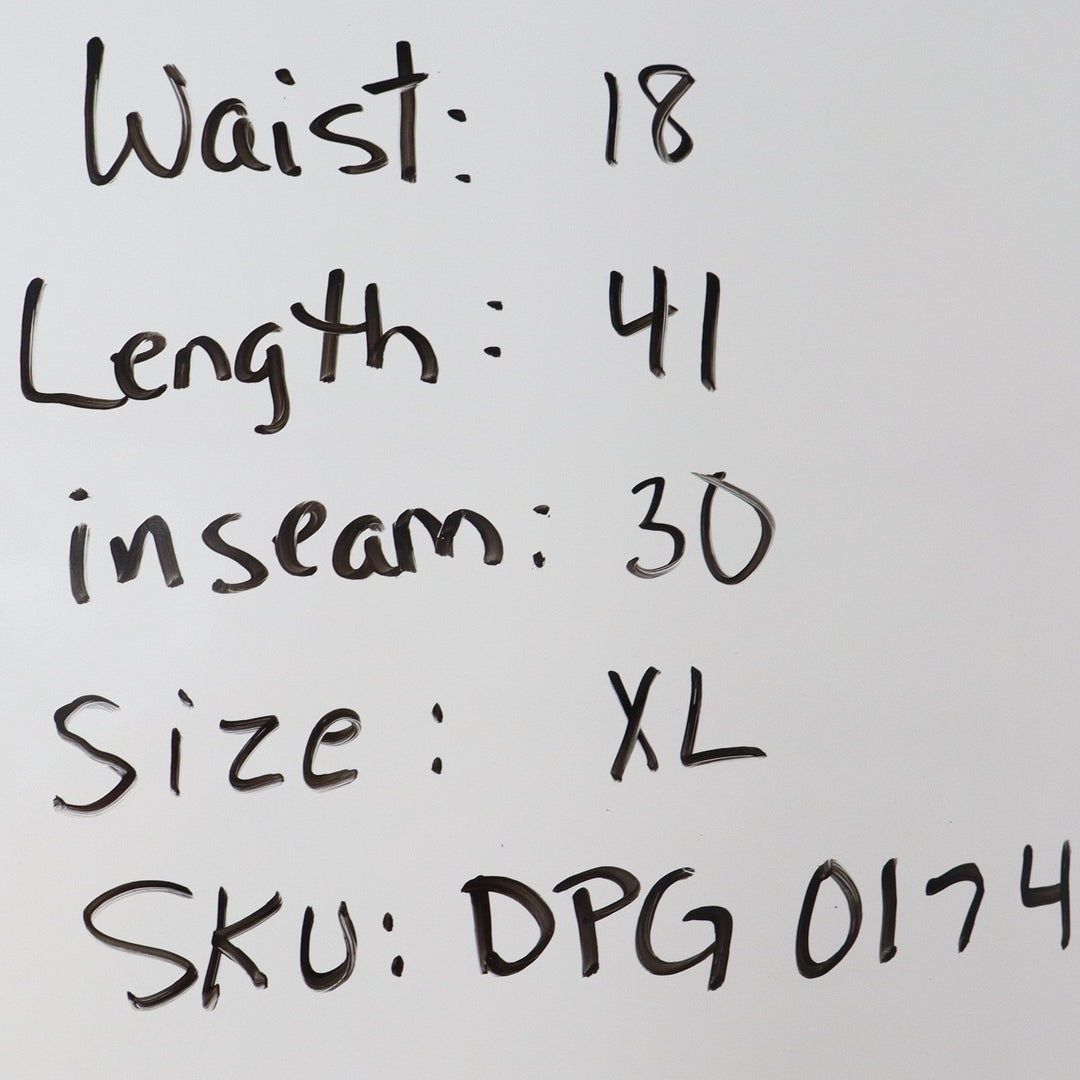 Waist: 18
Length: 41
inseam: 30
Size: XL
SKU: DPG 0174